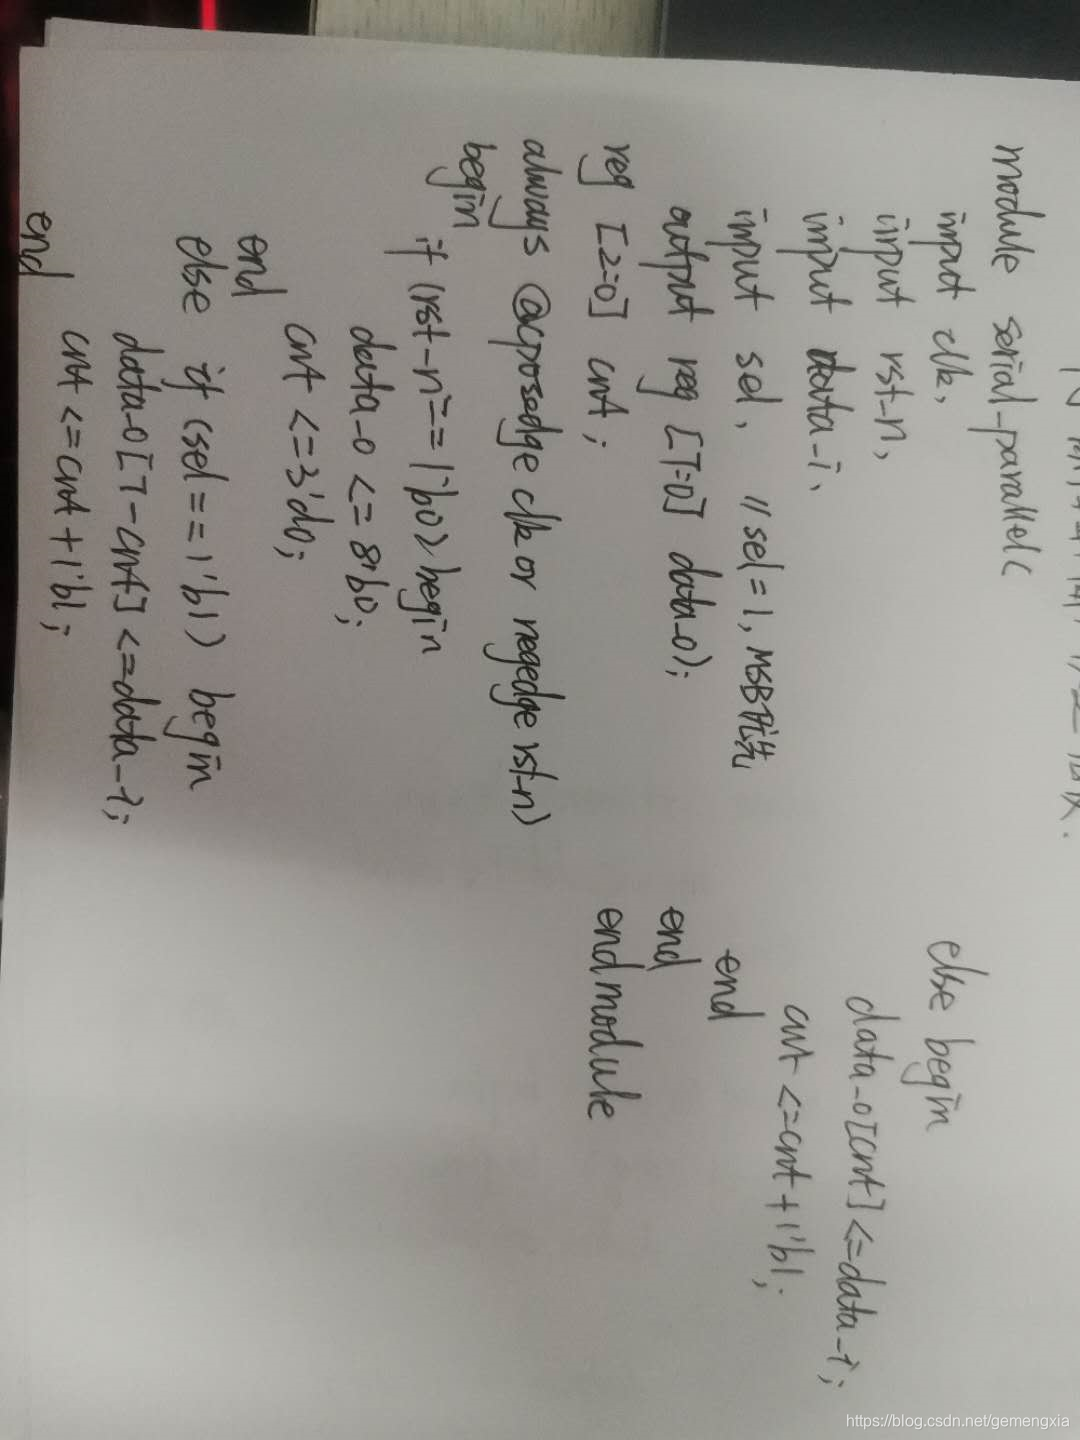 module serial_parallel(
input clk,
input rst_n,
input data_i,
input sel, //sel=1,MSB优先
output reg [7:0] data_o);
reg [2:0] cnt;
always @(posedge clk or negedge rst_n)
begin
if (rst_n==1'b0) begin
data_o <= 8'b0;
cnt <=3'd0;
end
else if (sel==1'b1) begin
data_o[7-cnt] <=data_i;
cnt <=cnt+1'b1;
end
else begin
data_o[cnt] <=data_i;
cnt <=cnt+1'b1;
end
end
endmodule
https://blog.csdn.net/gemengxia